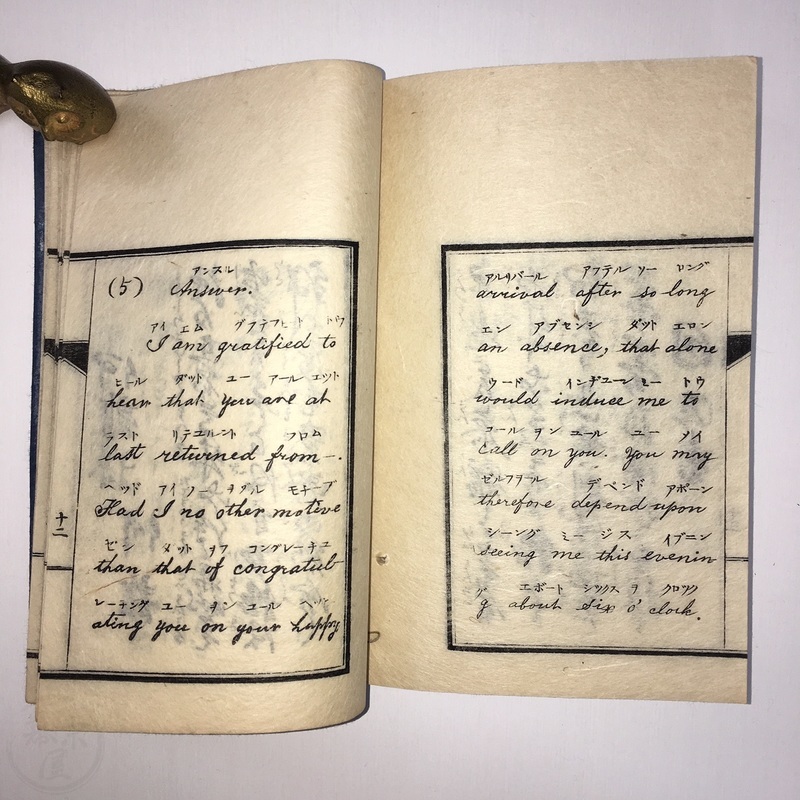 アンスル
(5) Answer.
アイ エム グラテフヒート トウ
I am gratified to
ヒール ダット ユー アール エット
hear that you are at
ラスト リテユルント フロム
last returned from —.
ヘッド アイ ノー ヲダル モチーブ
Had I no other motive
ゼン ダット ヲフ コングレーチュ
than that of congratul-
レーチング ユー ヲン ユール ヘッピ
ating you on your happy
十二
アルリバール アフテル ソー ロング
arrival after so long
エン アブセンシ ダット エロン
an absence, that alone
ウード インヂユーシ ミー トウ
would induce me to
コール ヲン ユール ユー メイ
call on you. You may
ゼルフヲール デペンド アポーン
therefore depend upon
シーング ミー ジス イブニン
seeing me this evenin
グ エボート シックス ヲ クロック
g about six o' clock.